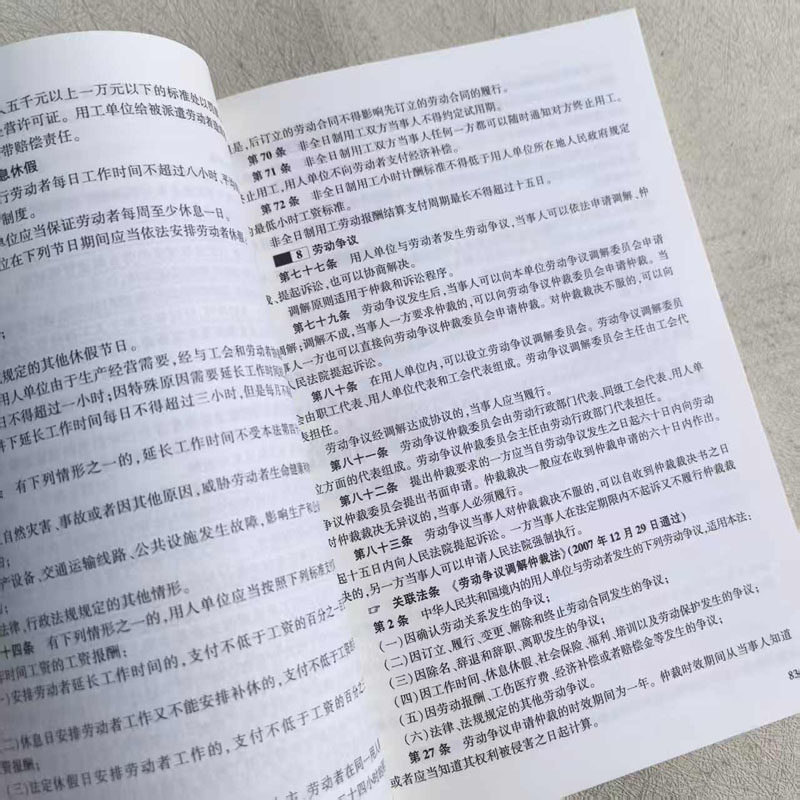 人五千元以上一万元以下的标准处以
营许可证。用工单位给被派遣劳动者
带赔偿责任。
息休假
行劳动者每日工作时间不超过八小时、平
制度。
单位应当保证劳动者每周至少休息一日。
位在下列节日期间应当依法安排劳动者休假：
；
规定的其他休假节日。
用人单位由于生产经营需要，经与工会和劳动者
日不得超过一小时；因特殊原因需要延长工作时间
件下延长工作时间每日不得超过三小时，但是每月不
有下列情形之一的，延长工作时间不受本法第四
自然灾害、事故或者因其他原因，威胁劳动者生命健康
产设备、交通运输线路、公共设施发生故障，影响生产和
；
法律、行政法规规定的其他情形。
十四条　有下列情形之一的，用人单位应当按照下列标准支
时间工资的工资报酬：
一）安排劳动者延长工作时间的，支付不低于工资的百分之一
（二）休息日安排劳动者工作又不能安排补休的，支付不低于工资的百分之
资报酬；
（三）法定休假日安排劳动者工作的，支付不低于工资的百分之
劳动者在同一用人
十四小时
是，后订立的劳动合同不得影响先订立的劳动合同的履行。
第 70 条　非全日制用工双方当事人不得约定试用期。
第 71 条　非全日制用工双方当事人任何一方都可以随时通知对方终止用工。
止用工，用人单位不向劳动者支付经济补偿。
第 72 条　非全日制用工小时计酬标准不得低于用人单位所在地人民政府规定
的最低小时工资标准。
非全日制用工劳动报酬结算支付周期最长不得超过十五日。
8 劳动争议
第七十七条　用人单位与劳动者发生劳动争议，当事人可以依法申请调解、仲
裁、提起诉讼，也可以协商解决。
调解原则适用于仲裁和诉讼程序。
第七十九条　劳动争议发生后，当事人可以向本单位劳动争议调解委员会申请
调解；调解不成，当事人一方要求仲裁的，可以向劳动争议仲裁委员会申请仲裁。当
事人一方也可以直接向劳动争议仲裁委员会申请仲裁。对仲裁裁决不服的，可以向
人民法院提起诉讼。
第八十条　在用人单位内，可以设立劳动争议调解委员会。劳动争议调解委员
会由职工代表、用人单位代表和工会代表组成。劳动争议调解委员会主任由工会代
表担任。
劳动争议经调解达成协议的，当事人应当履行。
第八十一条　劳动争议仲裁委员会由劳动行政部门代表、同级工会代表、用人单
位方面的代表组成。劳动争议仲裁委员会主任由劳动行政部门代表担任。
第八十二条　提出仲裁要求的一方应当自劳动争议发生之日起六十日内向劳动
争议仲裁委员会提出书面申请。仲裁裁决一般应在收到仲裁申请的六十日内作出。
对仲裁裁决无异议的，当事人必须履行。
第八十三条　劳动争议当事人对仲裁裁决不服的，可以自收到仲裁裁决书之日
起十五日内向人民法院提起诉讼。一方当事人在法定期限内不起诉又不履行仲裁裁
决的，另一方当事人可以申请人民法院强制执行。
☞ 关联法条　《劳动争议调解仲裁法》（2007 年 12 月 29 日通过）
第 2 条　中华人民共和国境内的用人单位与劳动者发生的下列劳动争议，适用本法：
（一）因确认劳动关系发生的争议；
（二）因订立、履行、变更、解除和终止劳动合同发生的争议；
（三）因除名、辞退和辞职、离职发生的争议；
（四）因工作时间、休息休假、社会保险、福利、培训以及劳动保护发生的争议；
（五）因劳动报酬、工伤医疗费、经济补偿或者赔偿金等发生的争议；
（六）法律、法规规定的其他劳动争议。
第 27 条　劳动争议申请仲裁的时效期间为一年。仲裁时效期间从当事人知道
或者应当知道其权利被侵害之日起计算。
83